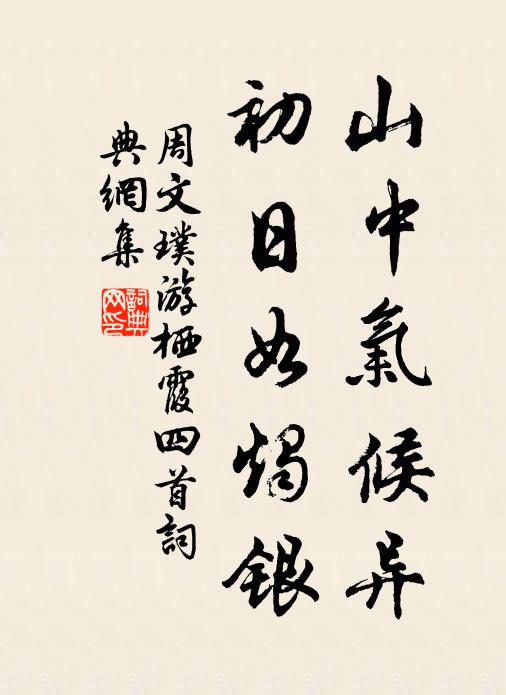 山中氣候异
初日如燭銀
周文璞游栖霞四首詞
典網集
詞典网印